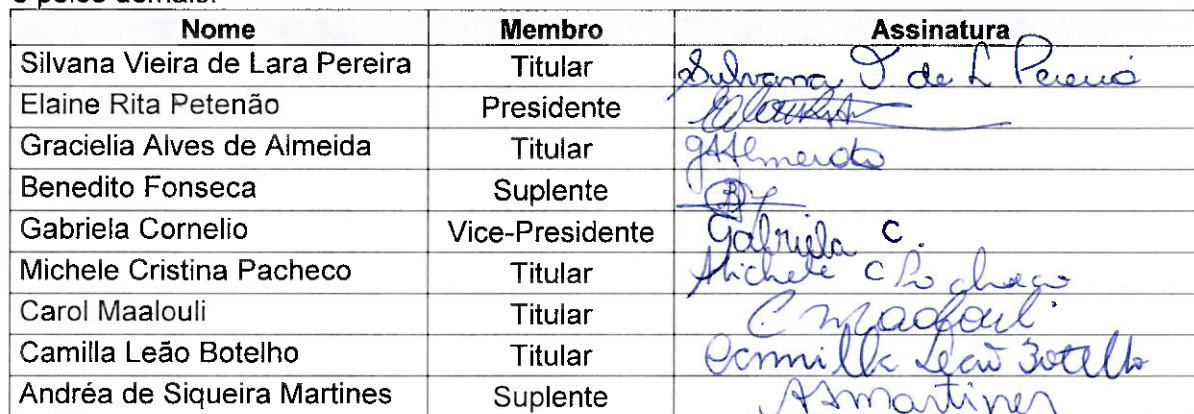 e pelos demais.
Nome Membro Assinatura
Silvana Vieira de Lara Pereira Titular Silvana V. de L Pereira
Elaine Rita Petenão Presidente
Gracielia Alves de Almeida Titular GAAlmeida
Benedito Fonseca Suplente
Gabriela Cornelio Vice-Presidente Gabriela C.
Michele Cristina Pacheco Titular Michele C Pacheco
Carol Maalouli Titular C Maalouli
Camilla Leão Botelho Titular Camilla Leão Botelho
Andréa de Siqueira Martines Suplente ASMartines